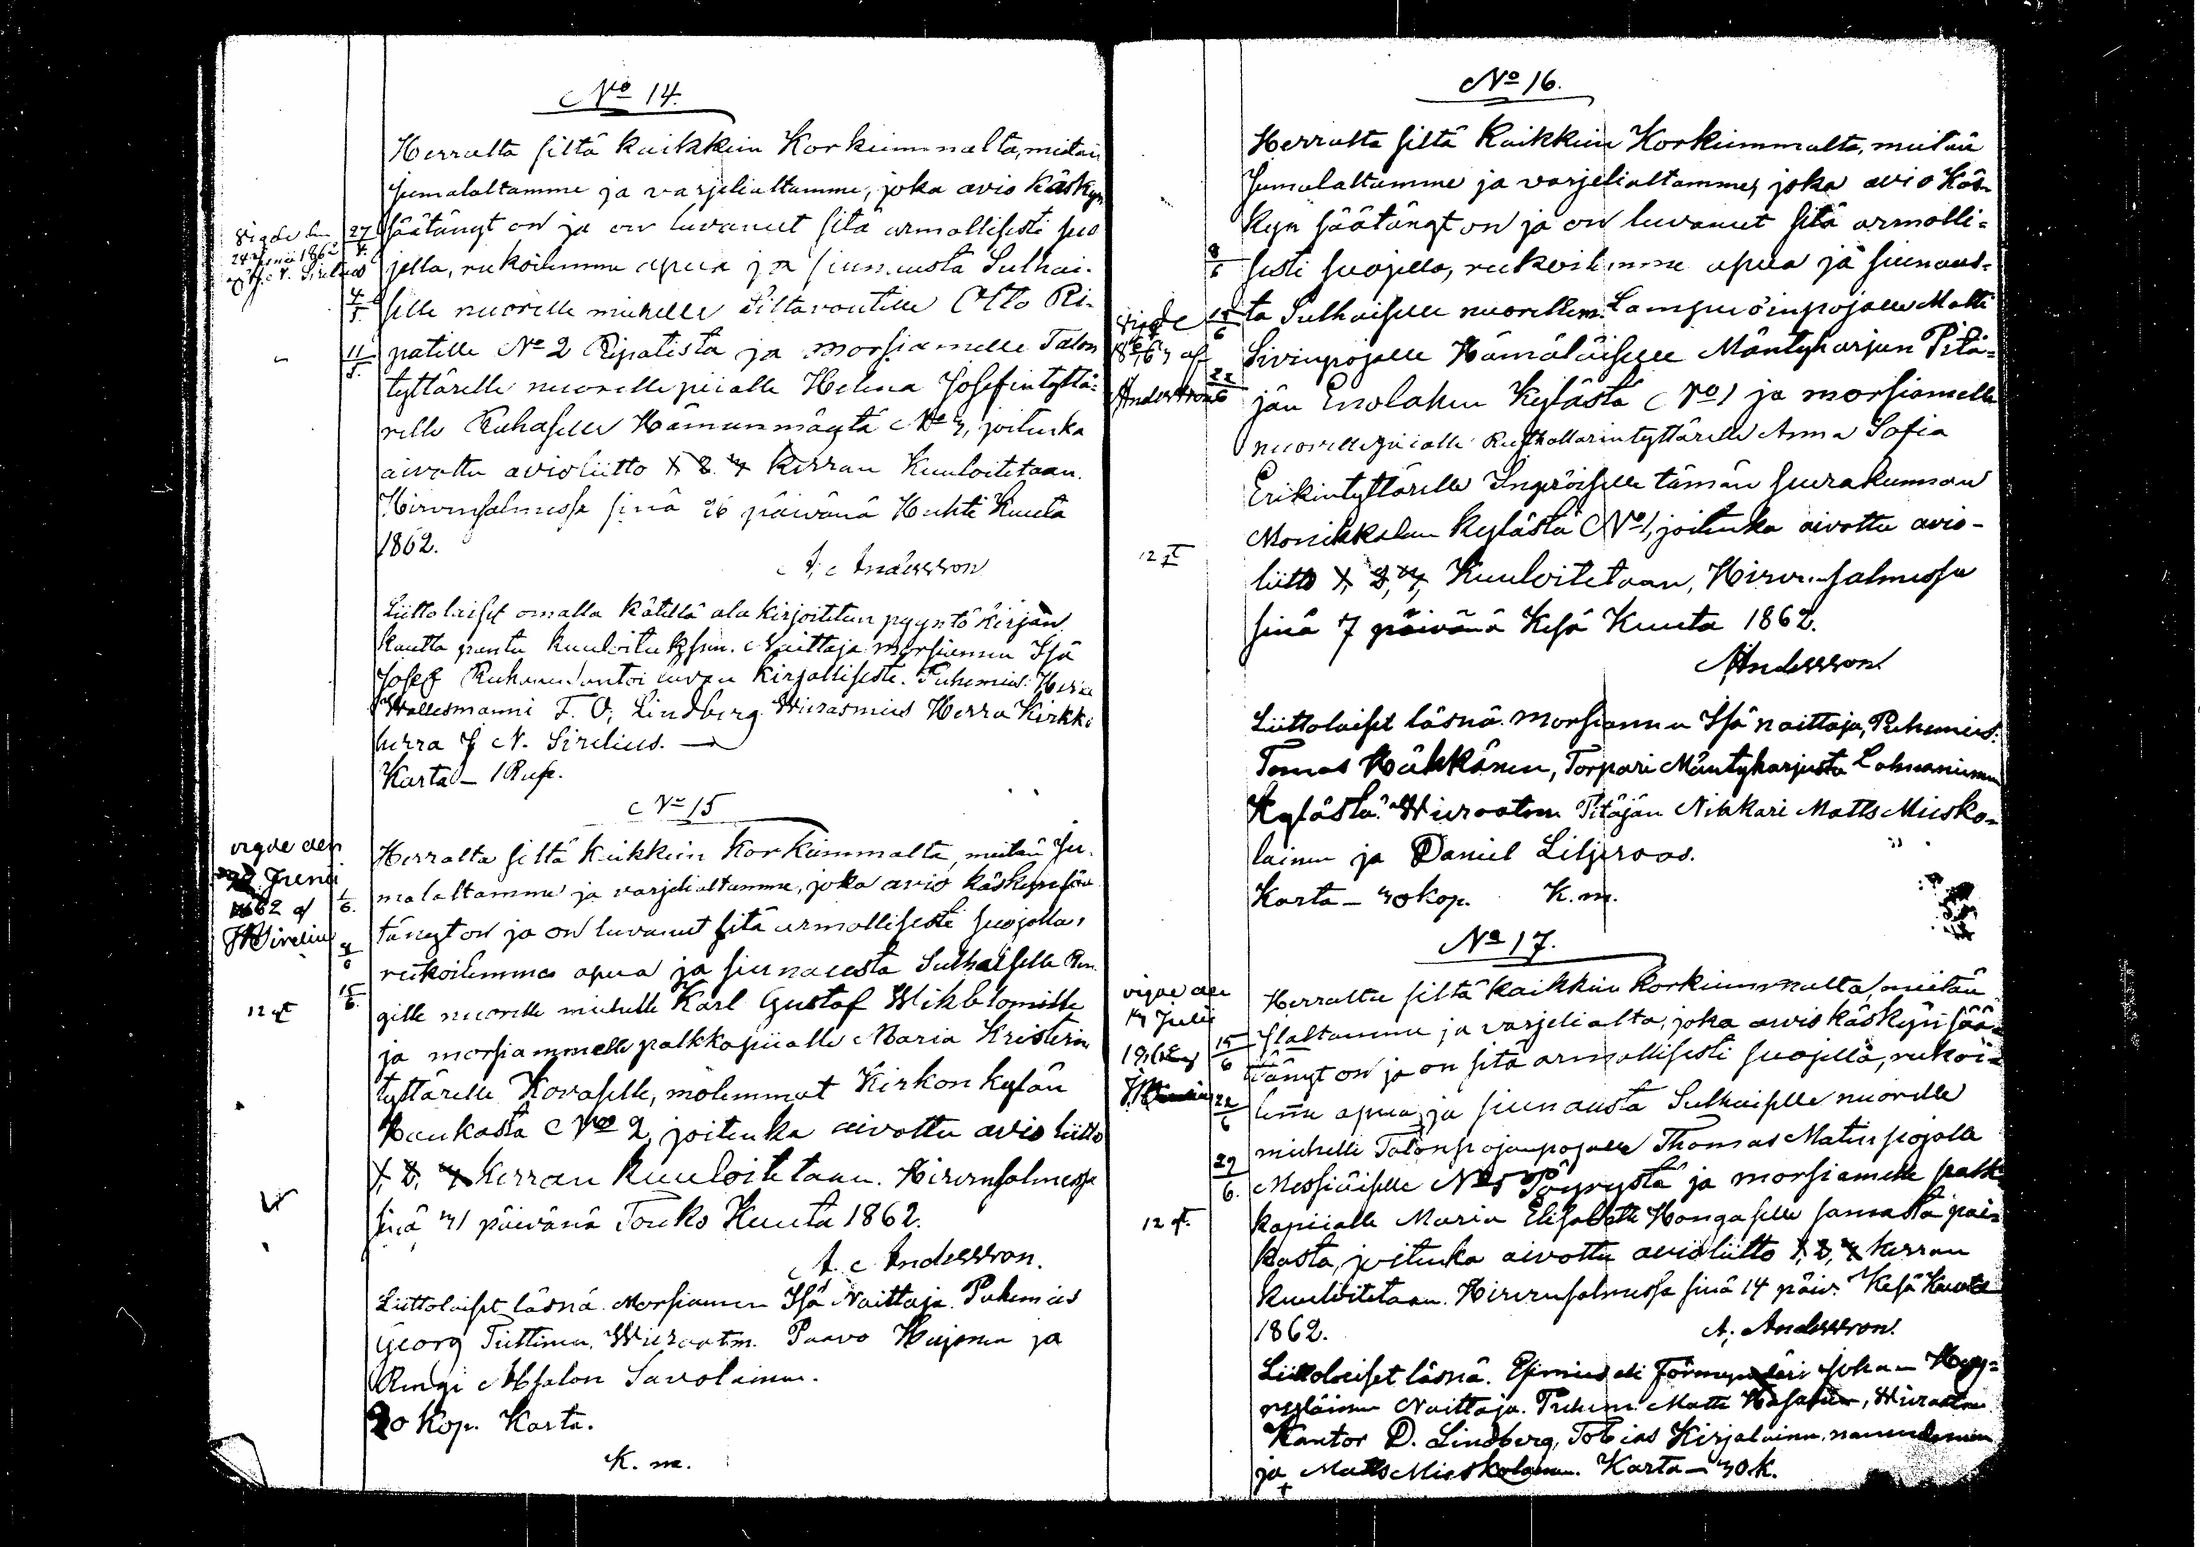 No 14.
Herralta siltä kaikkein Korkeimmalta, meitän
Jumalaltamme ja varjelialtamme, joka avio käskyn
säätänyt on ja on luvanut sitä armollisesti suo
jella, rukoilemme apua ja siunausta Sulhai-
selle nuorelle miehelle Siltavoutille Otto Ri-
patille No 2 Ripatista ja morsiamelle Talon
tyttärelle nuorelle piialle Helena Josefintyttä-
relle Ruhaselle Hämeenmäytä No 3, joitenka
aivottu avioliitto 1. 2. 3 kerran Kuuloitetaan.
Hirvensalmessa sinä 26 päivänä Huhti Kuuta
1862.
A. Andersson
Liittolaiset omalla kätellä ala kirjoitetun pyyntö kirjan
kautta pantu kuuloitukseen. Naittaja morsiamen Isä
Josef Ruhanen antoi luvan kirjallisesti. Puhemies: Herra
Wallesmanni F. O. Lindberg. Wierasmies Herra Kirkko
herra J N. Sirelius.
Karta – 1 Rup.
vigde den
24 Junii 1862
af J. N. Sirelius
27/4.
4/5.
11/5.
No 15
Herralta siltä kaikkein Korkeimmalta, meitän Ju-
malaltamme ja varjelialtamme, joka avio käskyn sää
tänyt on ja on luvanut sitä armollisesti suojella,
rukoilemme apua ja siunausta Sulhaiselle Ren
gille nuorelle miehelle Karl Gustaf Wikblomille
ja morsiammelle palkkapiialle Maria Kristerin
tyttärelle Kovaselle, molemmat Kirkon kylän
Haukasta No 2, joitenka aivottu avio liitto
1, 2, 3 Kerran Kuuloitetaan. Hirvensalmessa
sinä 31 päivänä Touko Kuuta 1862.
A. Andersson.
Liittolaiset läsnä. Morsiamen Isä Naittaja. Puhemies
Georg Tiittinen. Wieraatm. Paavo Hujanen ja
Rengi Absalon Savolainen.
20 Kop. Karta.
K. m.
vigde den
Junii
1862 af
JNSirelius
1/6.
8/6
15/6.
No 16.
Herralta siltä Kaikkein Korkeimmalta, meitän
Jumalaltamme ja varjelialtamme, joka avio Käs-
kyn säätänyt on ja on luvanut sitä armolli-
sesti suojella, rukoilemme apua ja siunaus-
ta Sulhaiselle nuorellem. Lampuoinpojalle Matti
Sivinpojalle Hämäläiselle Mäntyharjun Pitä-
jän Enolahen Kylästä No 1 ja morsiamelle
nuorellepiialle Rusthollarintyttärelle Anna Sofia
Erikintyttärelle Ingeröiselle tämän seurakunnan
Monikkalan Kylästä No 1, joitenka aivottu avio-
liitto 1, 2, 3, Kuuloitetaan, Hirvensalmessa
sinä 7 päivänä Kesä Kuuta 1862.
AAndersson.
Liittolaiset läsnä. Morsiamen Isä naittaja, Puhemies:
Tomas Häkkänen, Torpari Mäntyharjusta
Kylästä. Wieraatm. Pitäjän Nikkari Matts Miesko-
lainen ja Daniel Liljeroos.
Karta – 30 kop. K. m.
vigde
af
Andersson
8/6
15/6
22/6
No 17.
Herralta siltä kaikkein korkeimmalta, meitän
Jlaltamme ja varjelialta, joka avio käskyn sää-
tänyt on ja on sitä armollisesti suojella, rukoi-
leme apua ja siunausta Sulhaiselle nuorelle
miehelle Talonpojanpojalle Thomas Matinpojalle
Messiäiselle No 5 Pöyrystä ja morsiamelle palk-
kapiialle Maria Elisabeth Hongaselle samasta pai-
kasta, joitenka aivottu avioliitto 1, 2, 3 kerran
kuuloitetaan. Hirvensalmessa sinä 14 päiv. Kesä Kuuta
1862. A. Andersson.
Liittolaiset läsnä. Esimies eli Förmynderi Johan
Naittaja. Puhem. Matti Wieraatm.
Kantor D. Lindberg, Tobias Kirjalainen,
ja Matts Mieskolainen. Karta – 30 k.
vigde den
Julii
15/6
22/6
29/6.